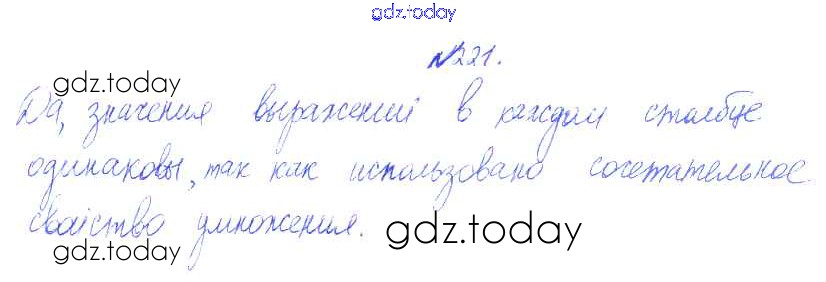 gdz.today
№221.
gdz.today
Да, значения выражений в каждом столбце
одинаковы, так как использовано сочетательное
свойство умножения.
gdz.today
gdz.today